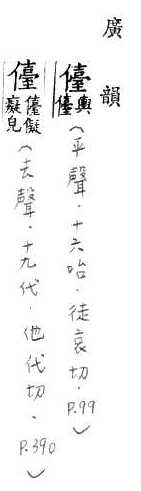 廣韻
儓輿儓(平聲．十六咍．徒哀切．P.99)
儓儓儗癡皃(去聲．十九代．他代切．P.390)